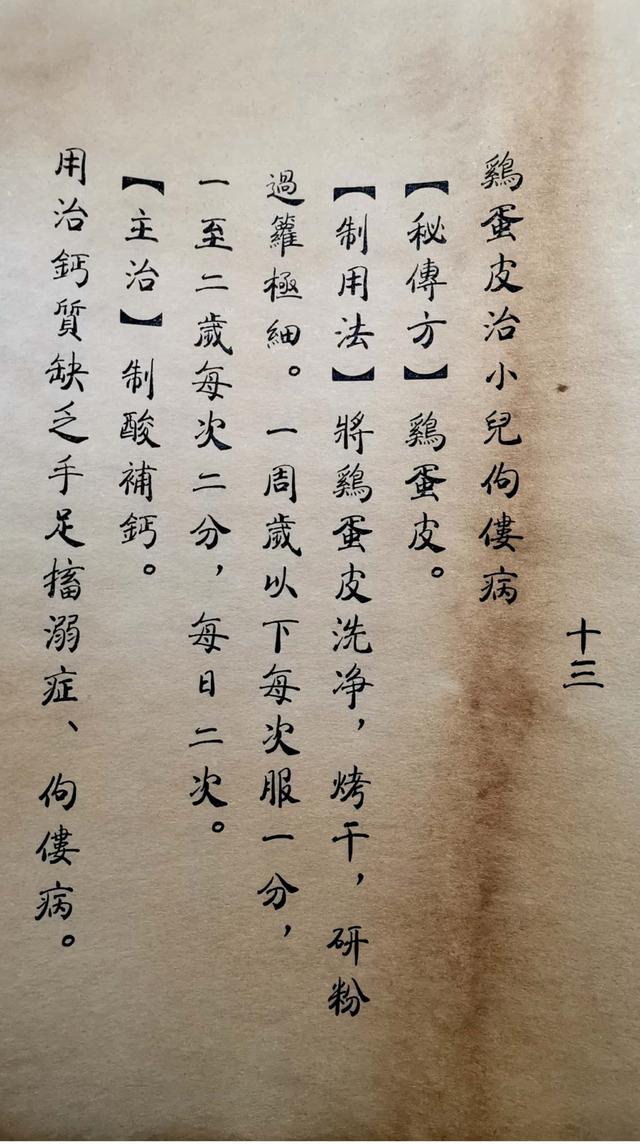 十三
鷄蛋皮治小兒佝僂病
【秘傳方】鷄蛋皮。
【制用法】將鷄蛋皮洗净，烤干，研粉
過籮極細。一周歲以下每次服一分，
一至二歲每次二分，每日二次。
【主治】制酸補鈣。
用治鈣質缺乏手足搐溺症、佝僂病。